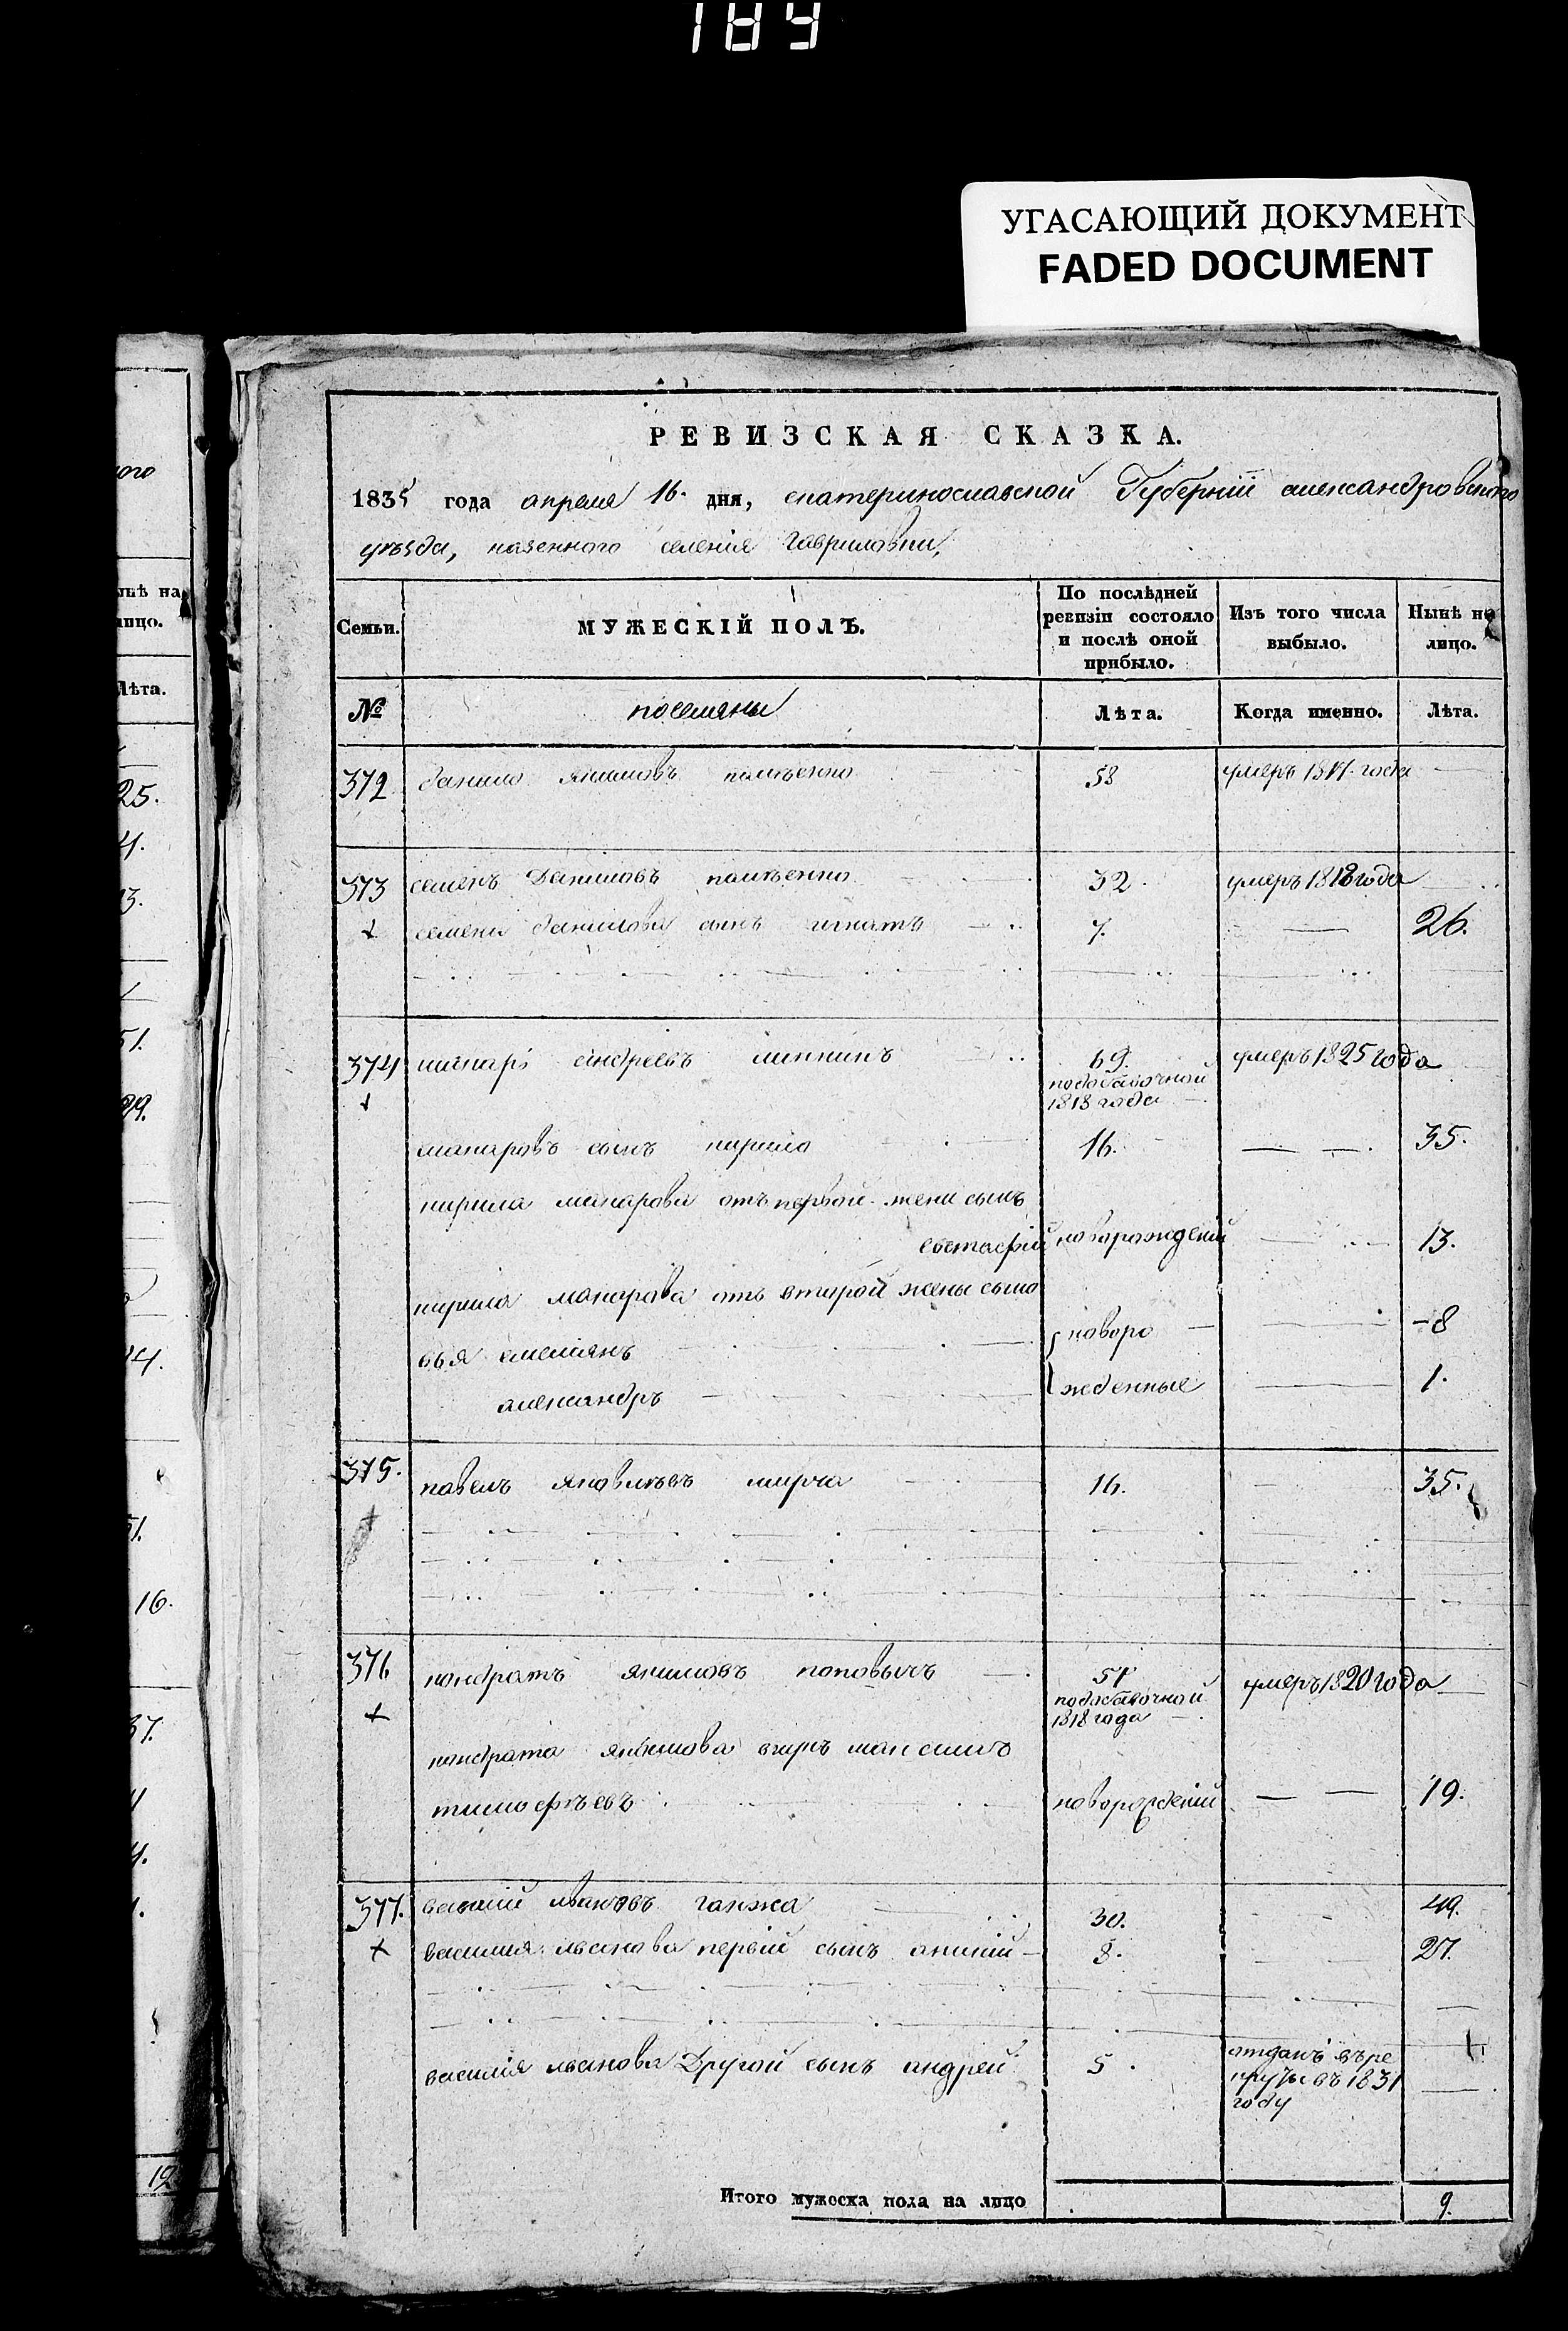 189
УГАСАЮЩИЙ ДОКУМЕНТ
FADED DOCUMENT
РЕВИЗСКАЯ СКАЗКА.
1835 года апреля 16. дня, екатеринославской Губерніи александровского
уѣзда, казенного селенія Гавриловки,
Семьи. МУЖЕСКІЙ ПОЛЪ. По послѣдней ревизіи состояло и послѣ оной прибыло. Изъ того числа выбыло. Нынѣ на лицо.
№ поселяны Лѣта. Когда именно. Лѣта.
372 данило якимовъ 58 умеръ года
373 семенъ Даниловъ 32. умеръ 1818 года
семена данилова сынъ игнатъ 7. 26.
374 макаръ андреевъ 69. умеръ 1825 года
1818 года
макаровъ сынъ кирило 16. 35.
кирила макарова отъ первой жены сынъ
евстафій новорожденій 13.
кирила макарова отъ второй жены сыно
вья емелiянъ новоро 8
александръ жденные 1.
375. павелъ яковлевъ 16. 35.
376 кондратъ якимовъ 51 умеръ 1820 года
1818 года
кондрата якимова максимъ
тимофѣевъ новорожденій 19.
377. василий ивановъ ганжа 30. 49.
василия иванова первій сынъ 8. 27.
василія иванова Другой сынъ андрей 5. отданъ въ ре
круты въ 1831
году
Итого мужеска пола на лицо 9.
ого
нынѣ на
лицо.
Лѣта.
25.
4.
3.
51.
29.
14.
51.
16.
37.
4.
12